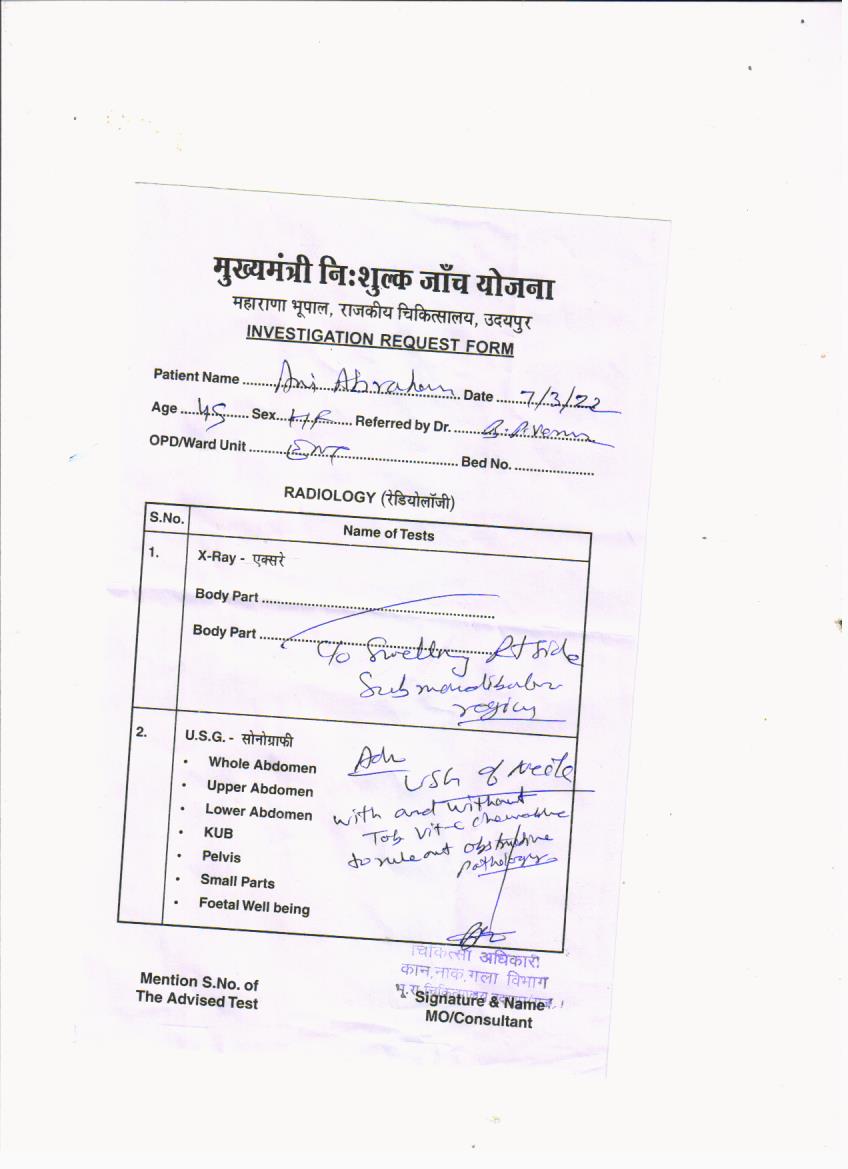 मुख्यमंत्री निःशुल्क जाँच योजना
महाराणा भूपाल, राजकीय चिकित्सालय, उदयपुर
INVESTIGATION REQUEST FORM
Patient Name Ani Abraham Date 7/3/22
Age 45 Sex Referred by Dr.
OPD/Ward Unit ENT Bed No.
RADIOLOGY (रेडियोलॉजी)
S.No. Name of Tests
1. X-Ray - एक्सरे
Body Part
Body Part
C/o Swelling Rt side
Submandibular
region
2. U.S.G. - सोनोग्राफी
Adv
• Whole Abdomen
USG of
• Upper Abdomen
• Lower Abdomen
with and without
Tab Vit-C chewable
• KUB
to rule out obstructive
• Pelvis
pathology
• Small Parts
• Foetal Well being
चिकित्सा अधिकारी
कान, नाक, गला विभाग
Mention S.No. of
The Advised Test
Signature & Name
MO/Consultant